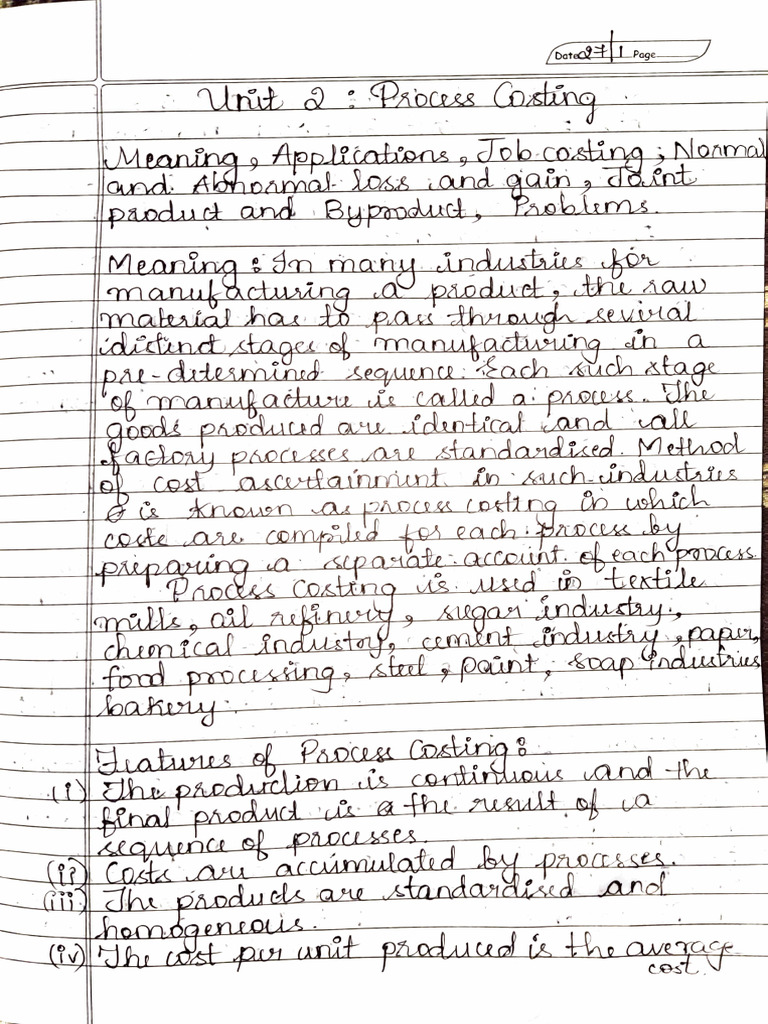 Date 27/1 Page
Unit 2 : Process Costing
Meaning, Applications, Job costing, Normal
and Abnormal loss and gain, Joint
product and Byproduct, Problems.
Meaning : In many industries for
manufacturing a product, the raw
material has to pass through several
distinct stages of manufacturing in a
pre-determined sequence. Each such stage
of manufacture is called a process. The
goods produced are identical and all
factory processes are standardised. Method
of cost ascertainment in such industries
is known as process costing in which
costs are compiled for each process by
preparing a separate account of each process.
Process Costing is used in textile
mills, oil refinery, sugar industry,
chemical industry, cement industry, paper,
food processing, steel, paint, soap industries
bakery.
Features of Process Costing :
(i) The production is continuous and the
final product is the result of a
sequence of processes.
(ii) Costs are accumulated by processes.
(iii) The products are standardised and
homogeneous.
(iv) The cost per unit produced is the average
cost.